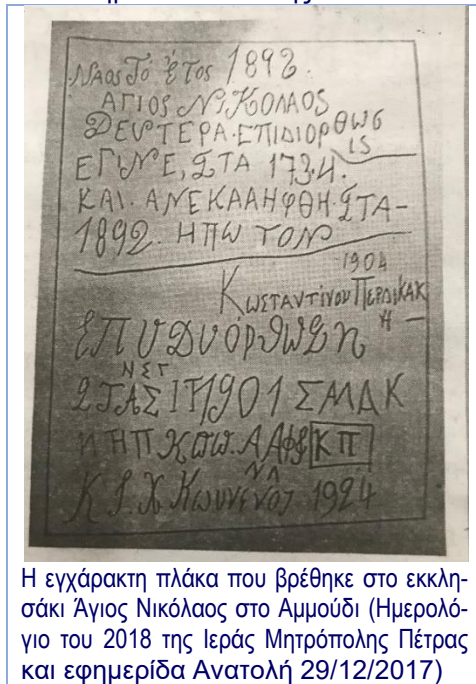 Ναος Τό έτος 1892.
ΑΓΙΟΣ ΝΙΚΟΛΑΟΣ
ΔΕΥΤΕΡΑ·ΕΠΙΔΙΟΡΘΩΣ
ΙS
ΕΓΙΝΕ, ΣΤΑ 1734.
ΚΑΙ. ΑΝΕΚΑΛΗΦΘΗ·ΣΤΑ-
1892. ΗΠΩ ΤΟΝ
1904
ΚωΣΤΑΝΤίνου ΠΕΡΔΙΚΑΚ
Η —
ΕΠΥΔΥΟΡΘΩΣΗ
ΝΣΓ
1901
ΚΠ
1924
Η εγχάρακτη πλάκα που βρέθηκε στο εκκλη-
σάκι Άγιος Νικόλαος στο Αμμούδι (Ημερολό-
γιο του 2018 της Ιεράς Μητρόπολης Πέτρας
και εφημερίδα Ανατολή 29/12/2017)